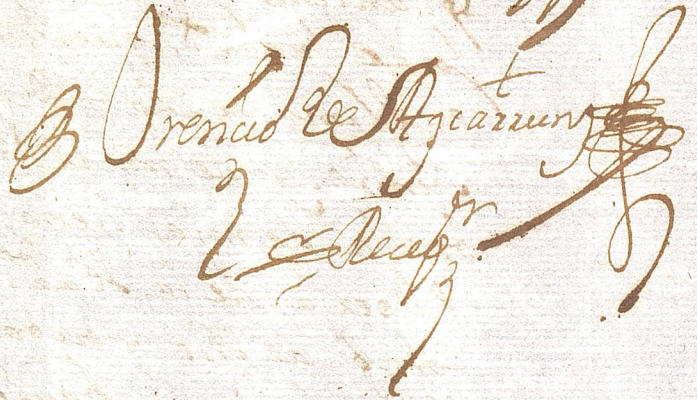 Orencio de Azcarrun
Recep.r